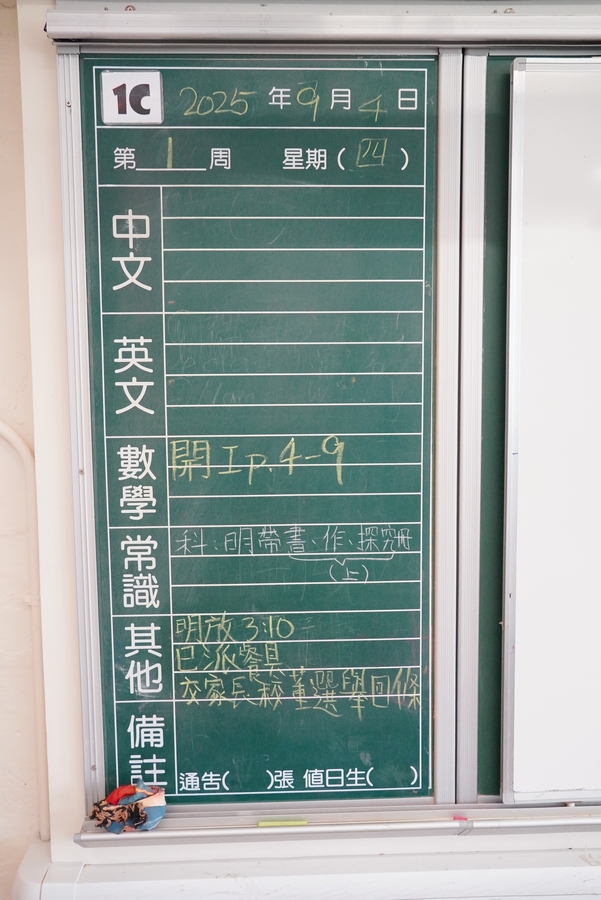 1C 2025年9月4日
第1周 星期(四)
中文
英文
數學
開工p.4-9
常識
科:明帶書、作、探究冊
(上)
其他
明放3:10
已派餐具
交家長校董選舉回條
備註
通告( )張 值日生( )